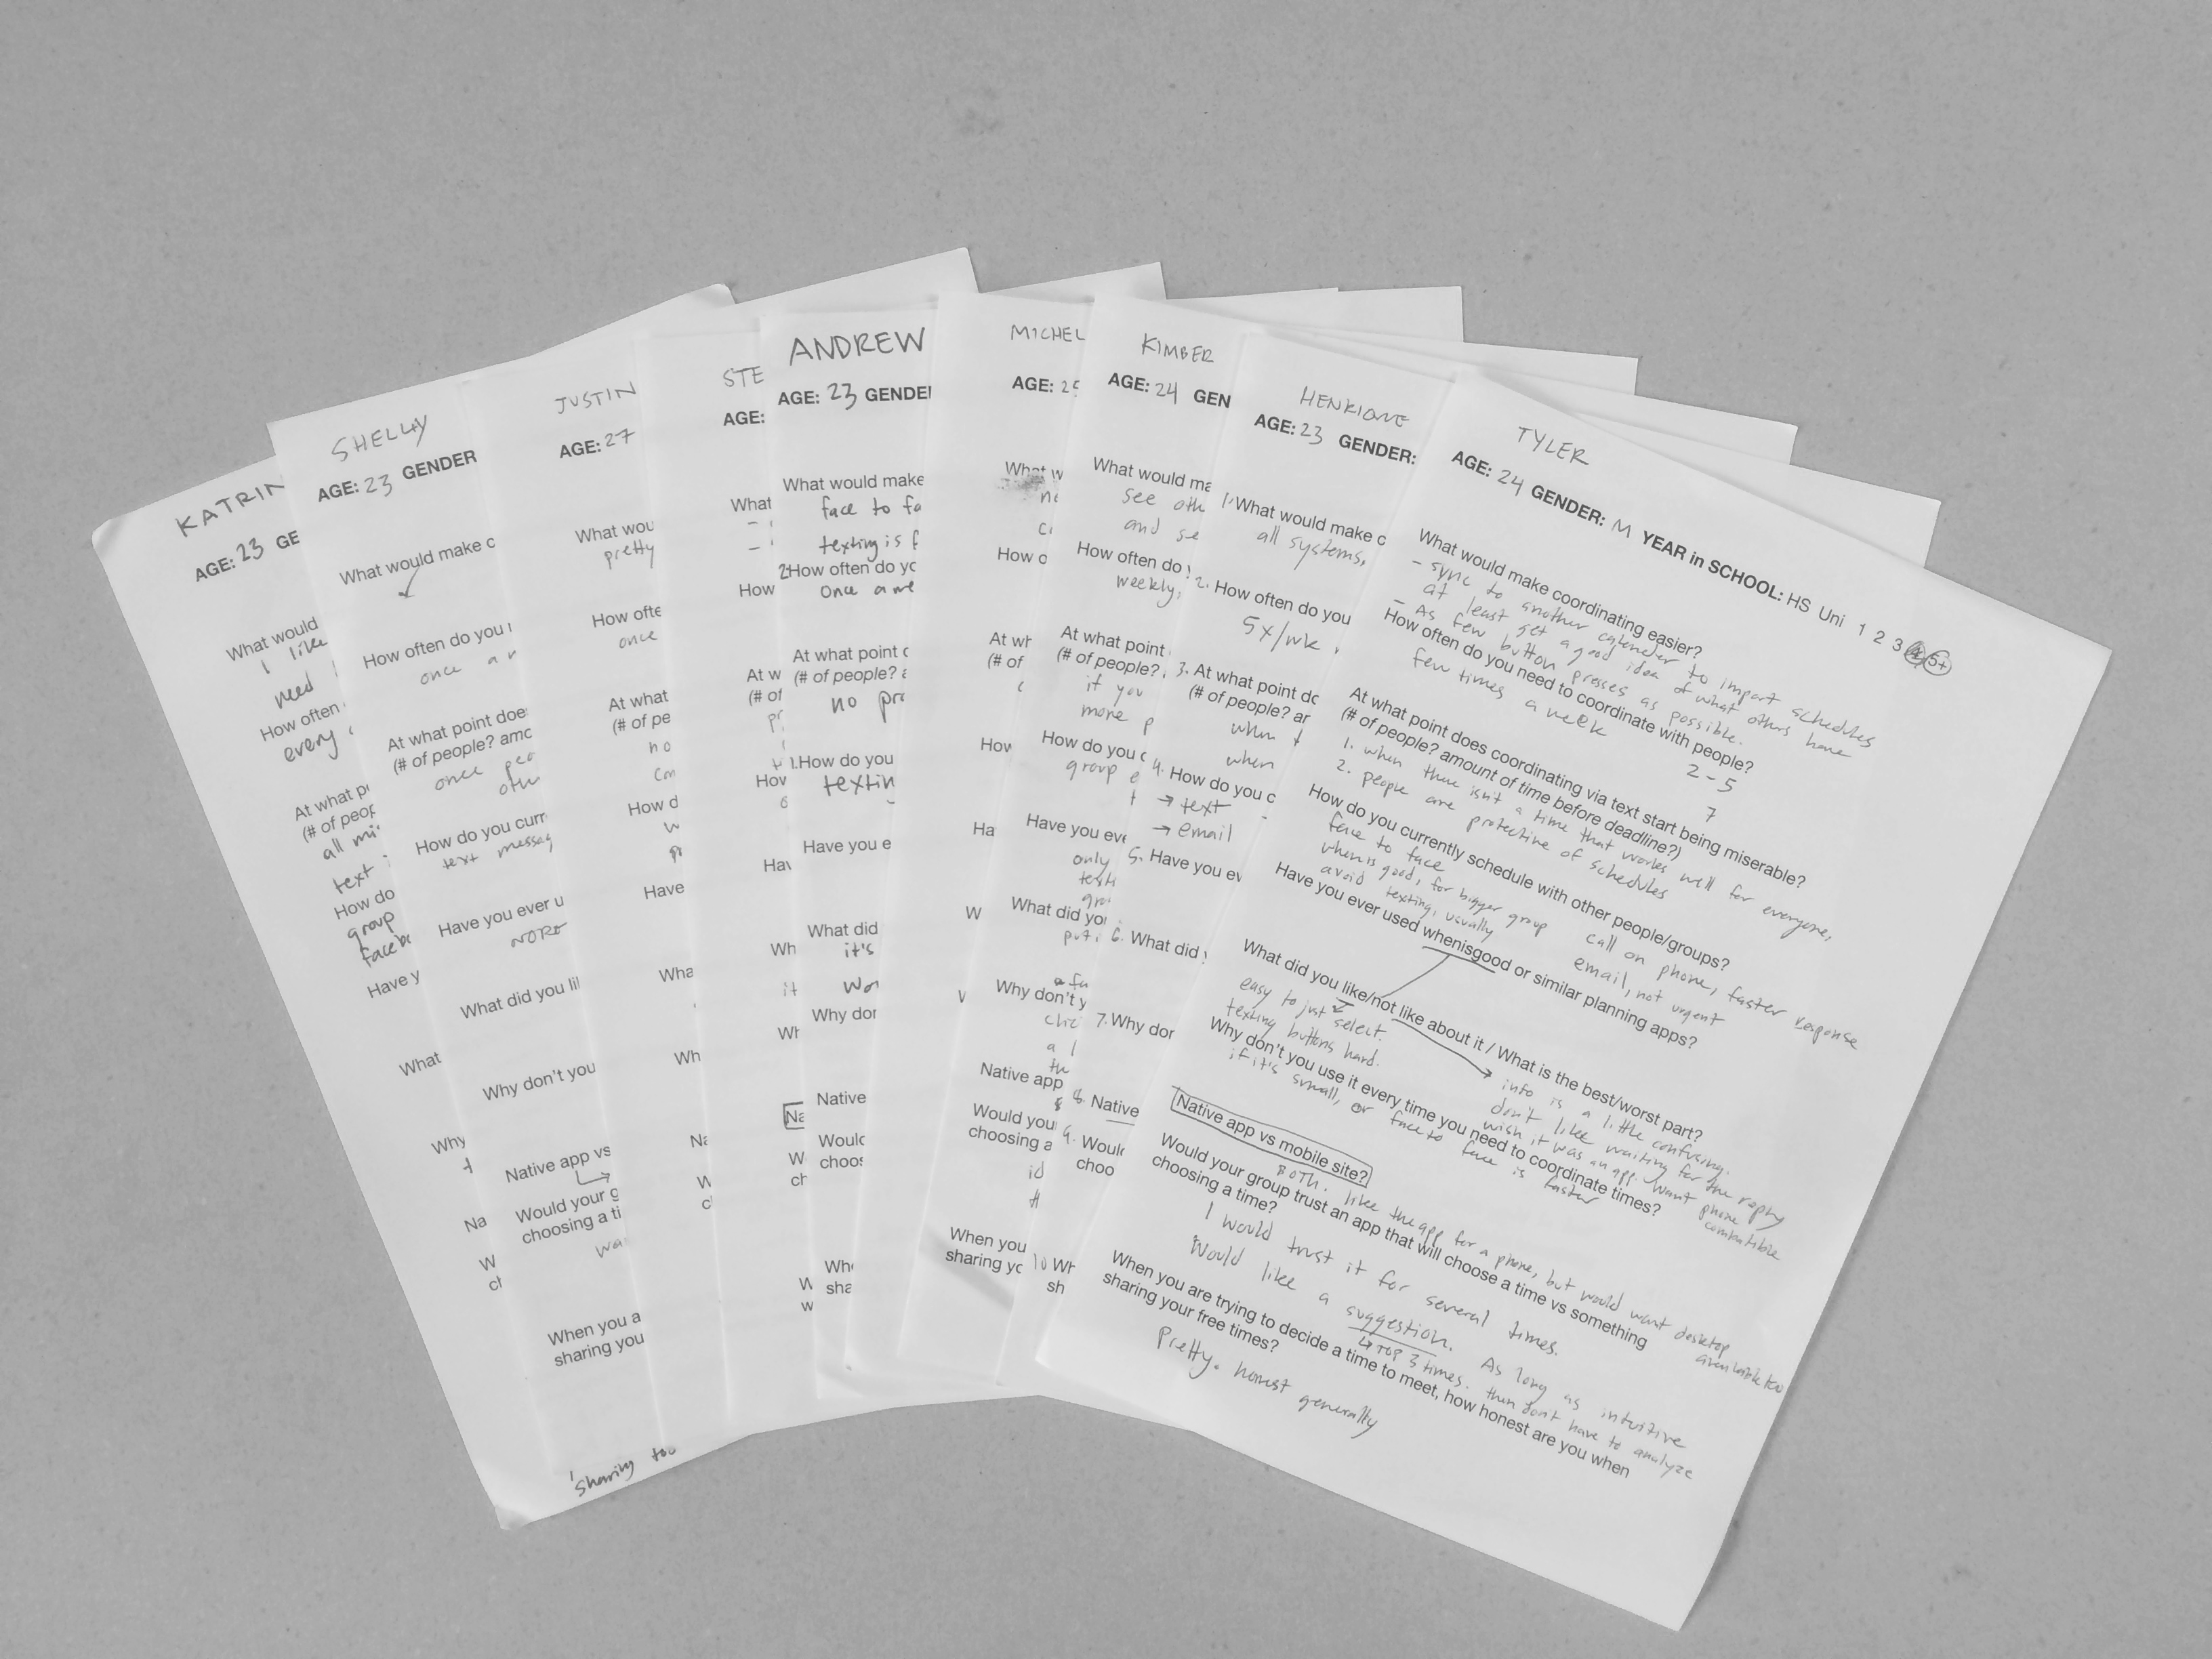 KATRIN
AGE: 23 GE
What would
I like
need
How often
every
At what p
(# of peop
all mi
text
How do
group
faceb
Have y
What
Why
Na
W
ch
Sharing too
SHELLY
AGE: 23 GENDER
What would make c
How often do you
once a
At what point doe
(# of people? amo
once peo
oth
How do you curr
text messag
Have you ever u
NOPE
What did you li
Why don't you
Native app vs
Would your g
choosing a ti
wa
When you a
sharing you
JUSTIN
AGE: 27
What wou
pretty
How ofte
once
At what
(# of pe
no
con
How d
w
Have
Wha
Wh
Na
W
c
STE
AGE:
What
-
-
How
At w
(# of
pr
How
Hav
Wh
it
Wh
Na
W
ch
W
w
ANDREW
AGE: 23 GENDE
What would make
face to fa
texting is f
2. How often do yo
Once a we
At what point d
(# of people? a
no pro
1. How do you
textin
Have you e
What did
it's
wor
Why don
Native
Would
choos
Whe
sha
MICHEL
AGE: 25
What w
How o
At wh
(# of
How
Ha
W
KIMBER
AGE: 24 GEN
What would ma
see oth
and se
How often do
weekly,
At what point
(# of people?
if you
more p
How do you c
group e
Have you eve
only
What did yo
put
Why don't y
clic
a l
th
Native app
Would you
choosing a
id
When you
sharing yo
HENRIQUE
AGE: 23 GENDER:
1. What would make c
all systems,
2. How often do you
5x/wk
3. At what point do
(# of people? ar
when
when
4. How do you c
→ text
→ email
5. Have you ev
6. What did
7. Why don
8. Native
9. Would
choo
10 Wh
sh
TYLER
AGE: 24 GENDER: M YEAR in SCHOOL: HS Uni 1 2 3 4 5+
What would make coordinating easier?
- sync to another calendar to import schedules
at least get a good idea of what others have
- As few button presses as possible.
How often do you need to coordinate with people?
few times a week 2-5
7
At what point does coordinating via text start being miserable?
(# of people? amount of time before deadline?)
1. when there isn't a time that works well for everyone,
2. people are protective of schedules
How do you currently schedule with other people/groups?
face to face call on phone, faster response
when is good, for bigger group email, not urgent
avoid texting, usually
Have you ever used whenisgood or similar planning apps?
What did you like/not like about it / What is the best/worst part?
easy to just select.
texting buttons hard.
info is a little confusing.
don't like waiting for the reply
wish it was an app. want phone combatible
Why don't you use it every time you need to coordinate times?
if it's small, or face to face is faster
Native app vs mobile site?
BOTH. like the app for a phone, but would want desktop available too
Would your group trust an app that will choose a time vs something
choosing a time?
I would trust it for several times.
Would like a suggestion. As long as intuitive
↳ TOP 3 times. then don't have to analyze
When you are trying to decide a time to meet, how honest are you when
sharing your free times?
Pretty. honest generally